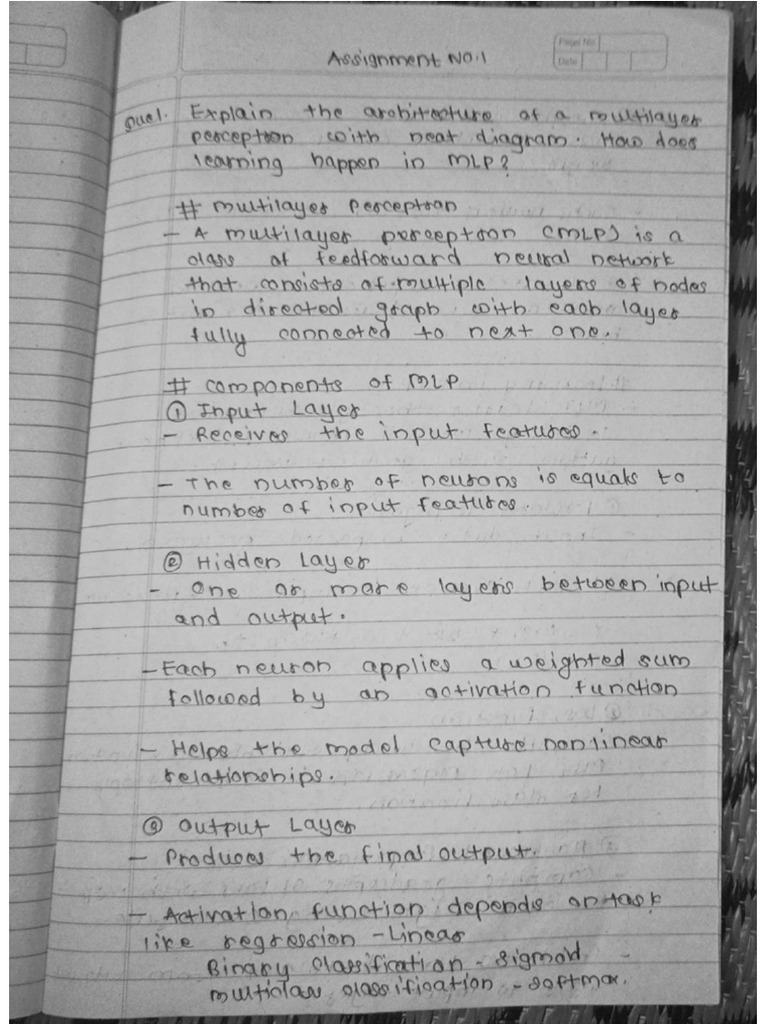 Page No.
Date
Assignment No.1
Que1. Explain the architecture of a multilayer
perceptron with neat diagram. How does
learning happen in MLP?
# Multilayer Perceptron
- A multilayer perceptron (MLP) is a
class of feedforward neural network
that consists of multiple layers of nodes
in directed graph with each layer
fully connected to next one.
# Components of MLP
① Input Layer
- Receives the input features.
- The number of neurons is equals to
number of input features.
② Hidden Layer
- One or more layers between input
and output.
- Each neuron applies a weighted sum
followed by an activation function
- Helps the model capture nonlinear
relationships.
③ Output Layer
- Produces the final output.
- Activation function depends on task
like regression - Linear
Binary classification - sigmoid
multiclass classification - softmax.